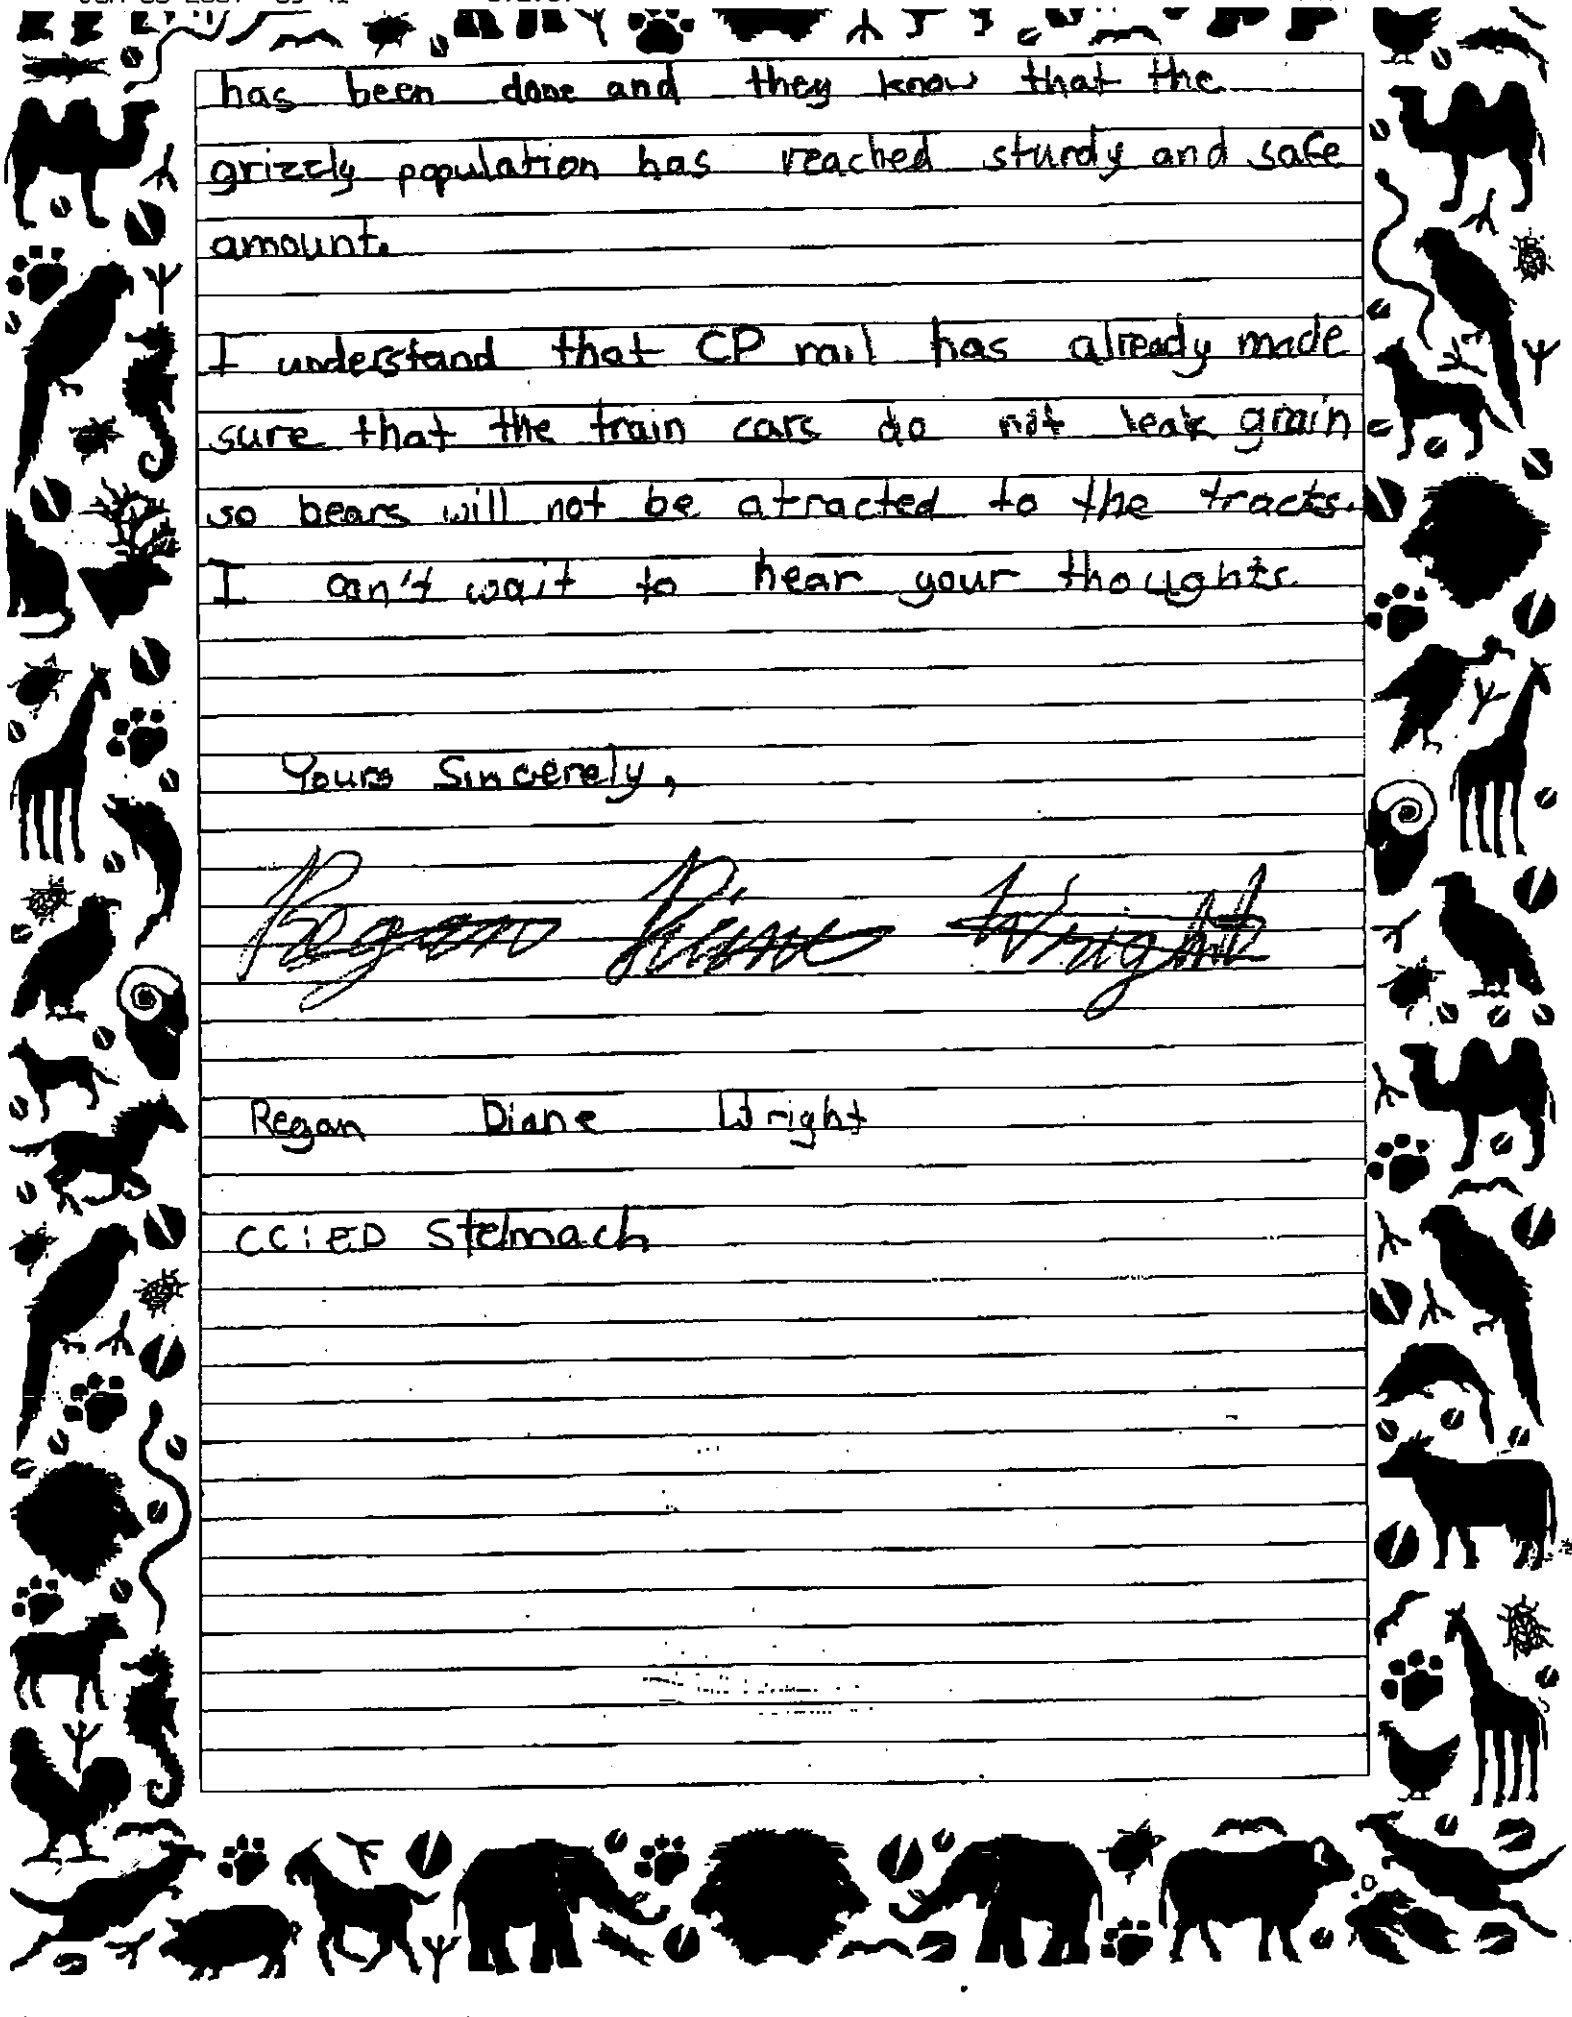 has been done and they know that the
grizzly population has reached sturdy and safe
amount.
I understand that CP rail has already made
sure that the train cars do not leak grain
so bears will not be atracted to the tracts.
I can't wait to hear your thoughts
Yours Sincerely,
Regan Diane Wright
Regan Diane Wright
CC: ED Stelmach